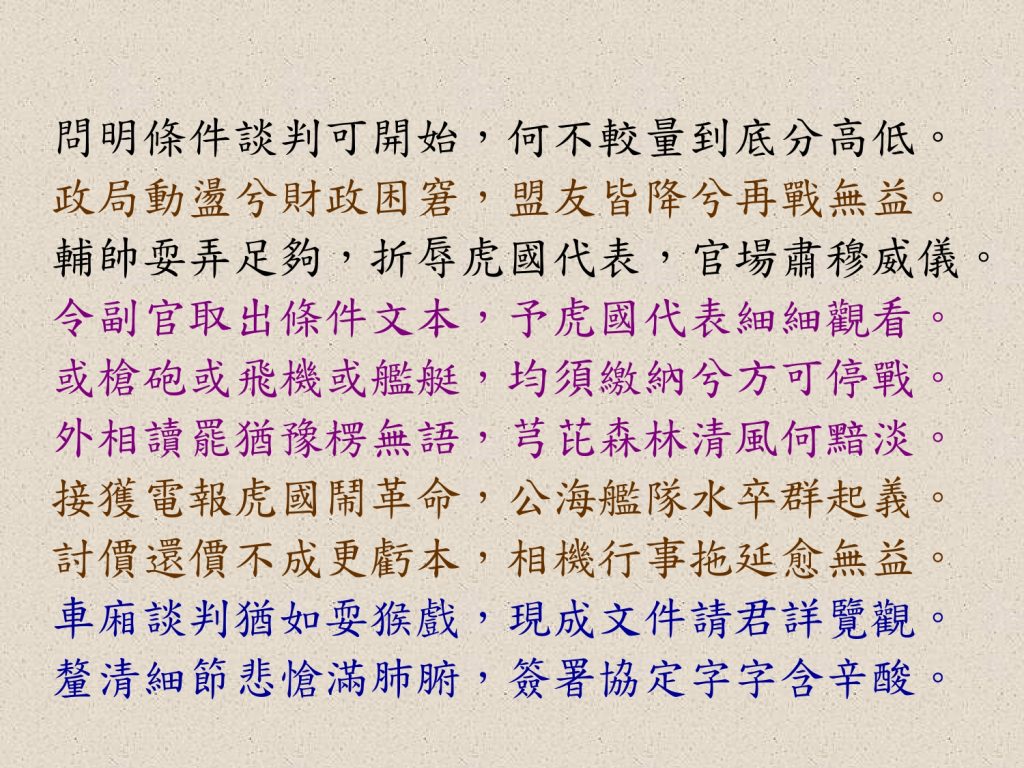 問明條件談判可開始，何不較量到底分高低。
政局動盪兮財政困窘，盟友皆降兮再戰無益。
輔帥耍弄足夠，折辱虎國代表，官場肅穆威儀。
令副官取出條件文本，予虎國代表細細觀看。
或槍砲或飛機或艦艇，均須繳納兮方可停戰。
外相讀罷猶豫楞無語，芎芘森林清風何黯淡。
接獲電報虎國鬧革命，公海艦隊水卒群起義。
討價還價不成更虧本，相機行事拖延愈無益。
車廂談判猶如耍猴戲，現成文件請君詳覽觀。
釐清細節悲愴滿肺腑，簽署協定字字含辛酸。